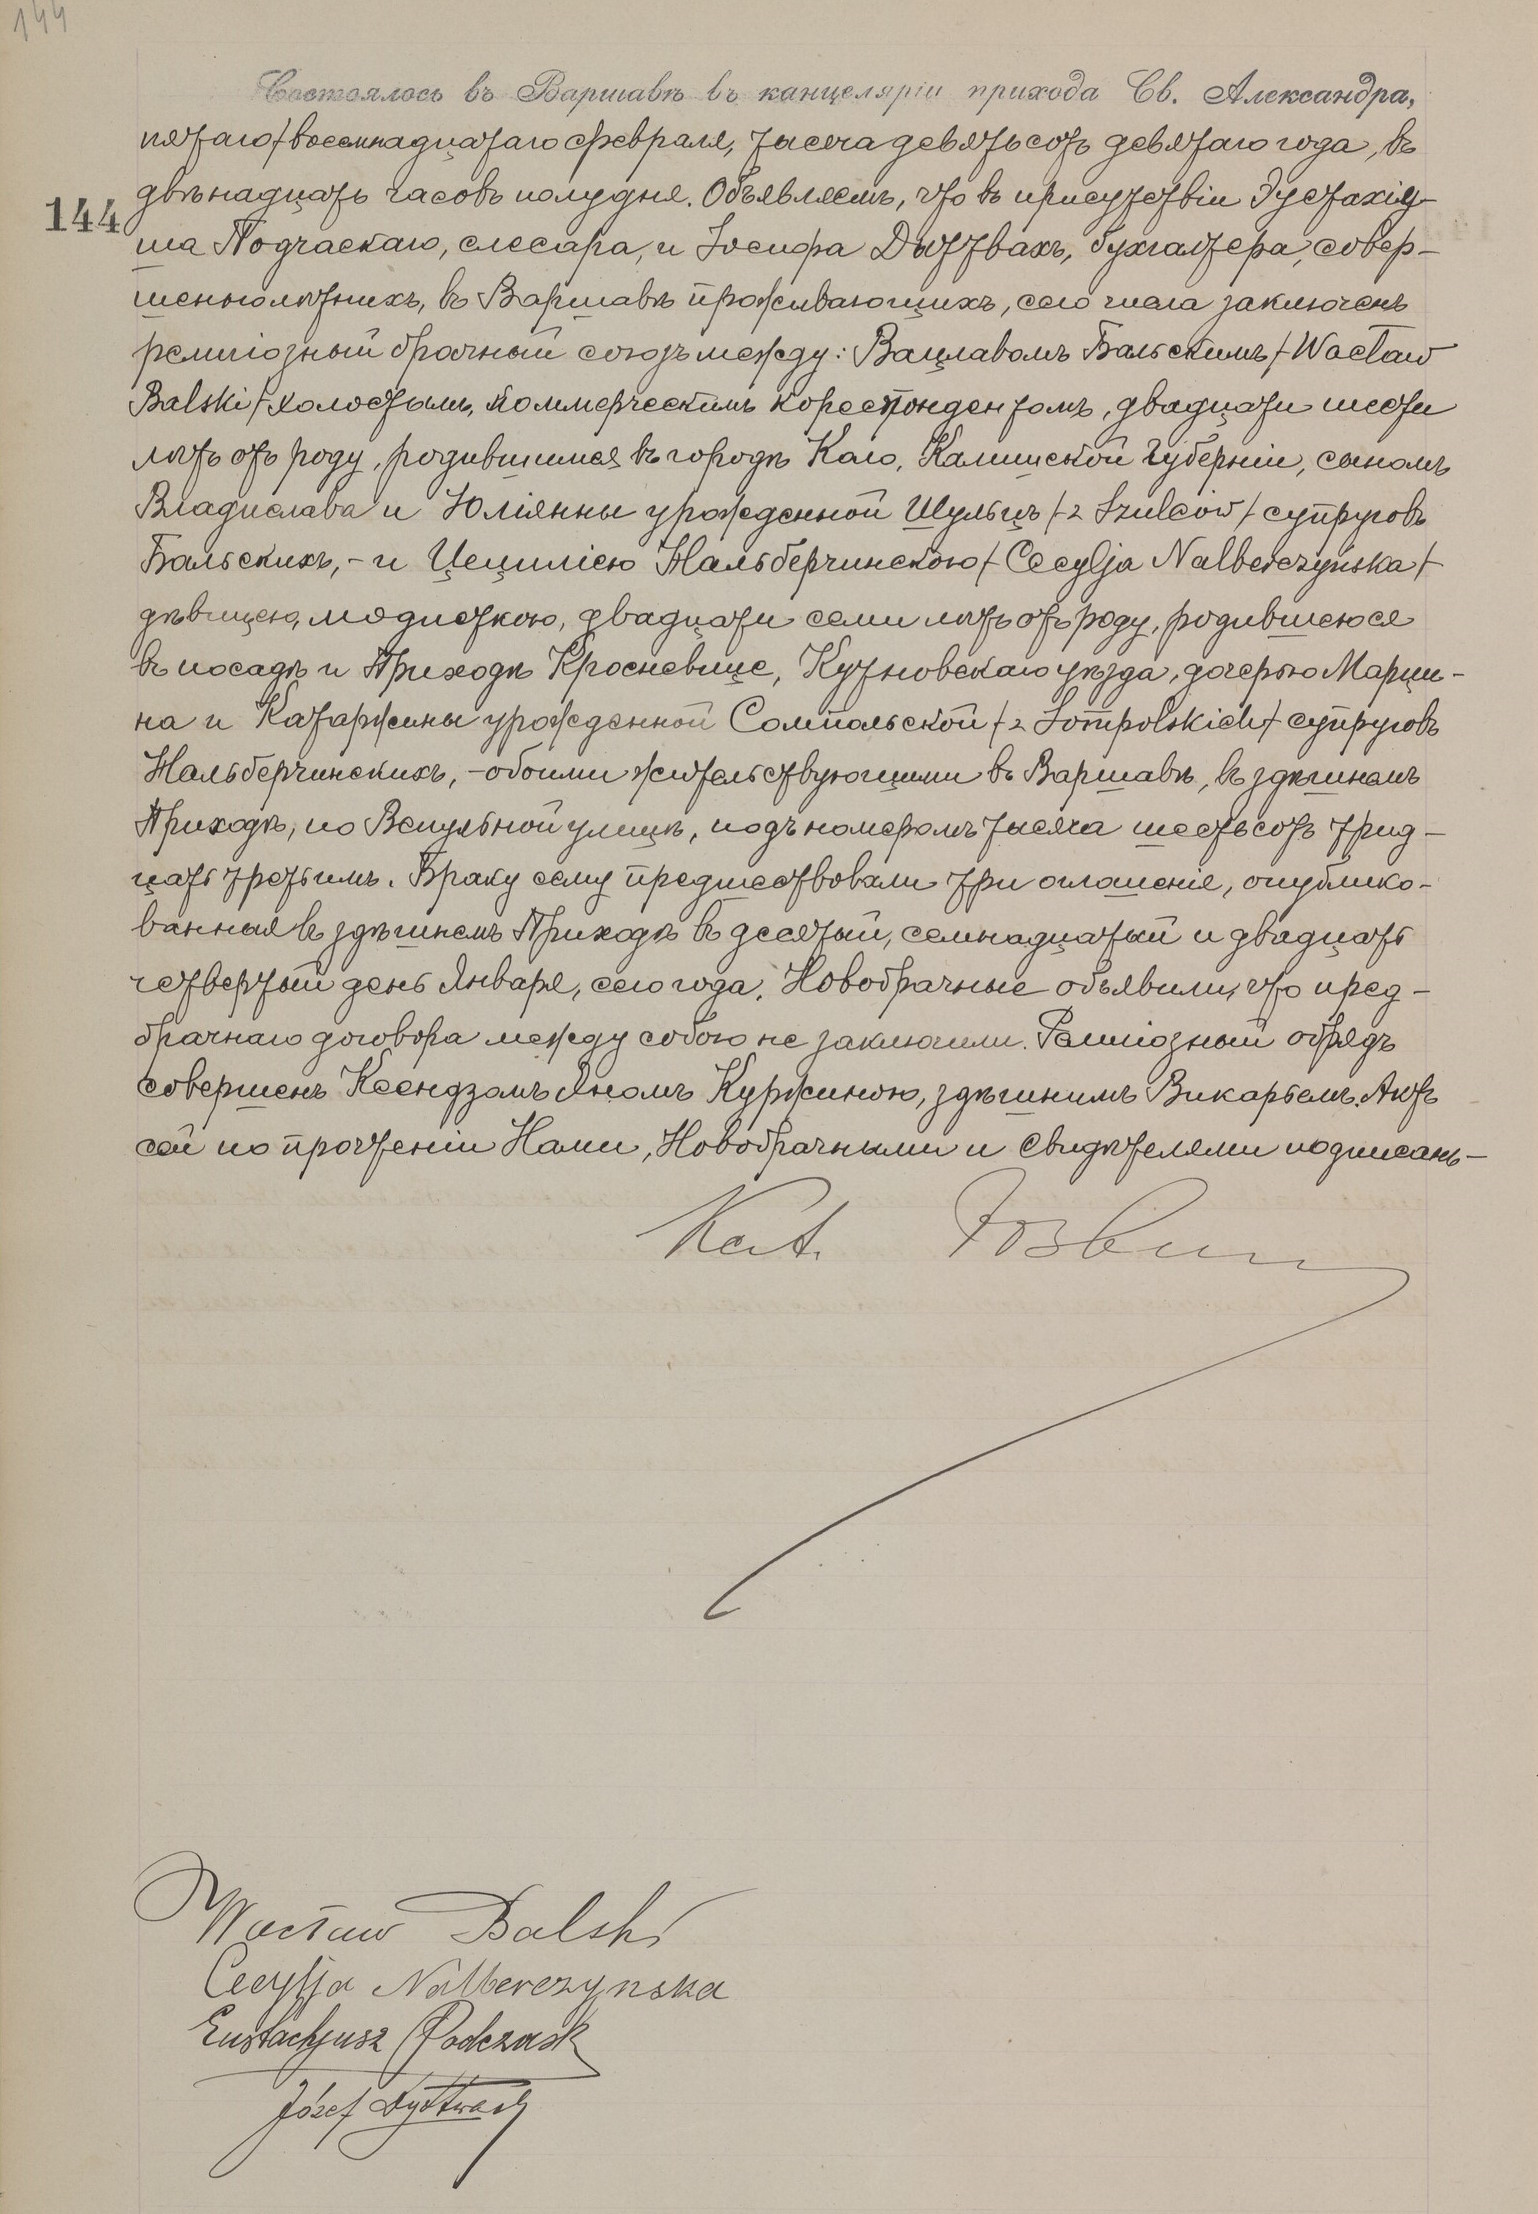 144
Состоялось въ Варшавѣ въ канцеляріи прихода Св. Александра,
пятаго/восемнадцатаго февраля, тысяча девятьсотъ девятаго года, въ
двѣнадцать часовъ полудня. Объявляемъ, что въ присутствіи Эустахіу-
144
ша Подчаскаго, слесара, и Іосифа Дыттвахъ, бухгалтера, совер-
шеннолѣтнихъ, въ Варшавѣ проживающихъ, сего числа заключенъ
религіозный брачный союзъ между: Вацлавомъ Бальскимъ /Wacław
Balski/ холостымъ, коммерческимъ кореспондентомъ, двадцати шести
лѣтъ отъ роду, родившимся въ городѣ Коло, Калишской Губерніи, сыномъ
Владислава и Юліянны урожденной Шульцъ /z Szulców/ супруговъ
Бальскихъ, - и Цецилією Нальберчинскою /Cecylja Nalberczyńska/
дѣвицею, модисткою, двадцати семи лѣтъ отъ роду, родившеюся
въ посадѣ и Приходѣ Кросневице, Кутновскаго уѣзда, дочерью Марци-
на и Катаржины урожденной Сомпольской /z Sompolskich/ супруговъ
Нальберчинскихъ, - обоими жительствующими въ Варшавѣ, въ здѣшнемъ
Приходѣ, по Вспульной улицѣ, подъ номеромъ тысяча шестьсотъ трид-
цать третьимъ. Браку сему предшествовали три оглашенія, опублико-
ванныя въ здѣшнемъ Приходѣ въ десятый, семнадцатый и двадцать
четвертый день Января, сего года. Новобрачные объявили, что пред-
брачнаго договора между собою не заключили. Религіозный обрядъ
совершенъ Ксендзомъ Яномъ Куржиною, здѣшнимъ Викарьемъ. Актъ
сей по прочтеніи Нами, Новобрачными и Свидѣтелями подписанъ -
Wacław Balski
Cecylja Nalberczynska
Eustachjusz Podczask
Józef Dyttwach